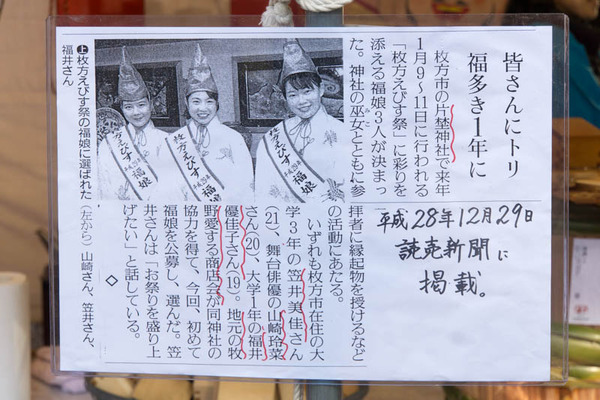 皆さんにトリ
福多き1年に
枚方市の片埜神社で来年
1月9～11日に行われる
「枚方えびす祭」に彩りを
添える福娘3人が決まっ
た。神社の巫女とともに参
みこ
拝者に縁起物を授けるなど
の活動にあたる。
いずれも枚方市在住の大
学3年の笠井美佳さん
(21)、舞台俳優の山崎玲菜
さん(20)、大学1年の福井
優佳子さん(19)。地元の牧
野愛する商店会が同神社の
協力を得て、今回、初めて
福娘を公募し、選んだ。笠
井さんは「お祭りを盛り上
げたい」と話している。
◇
上枚方えびす祭の福娘に選ばれた
(左から)山崎さん、笠井さん、
福井さん
枚方えびす
福娘
枚方えびす
福娘
枚方えびす
福娘
平成28年12月29日
読売新聞に
掲載。